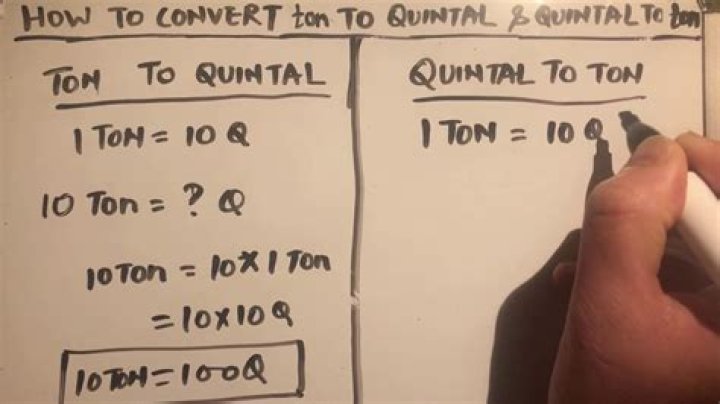 HOW TO CONVERT ton TO QUINTAL & QUINTAL TO ton
TON TO QUINTAL
1 TON = 10 Q
10 Ton = ? Q
10 TON = 10 X 1 TON
= 10 X 10 Q
10 TON = 100 Q
QUINTAL TO TON
1 TON = 10 Q